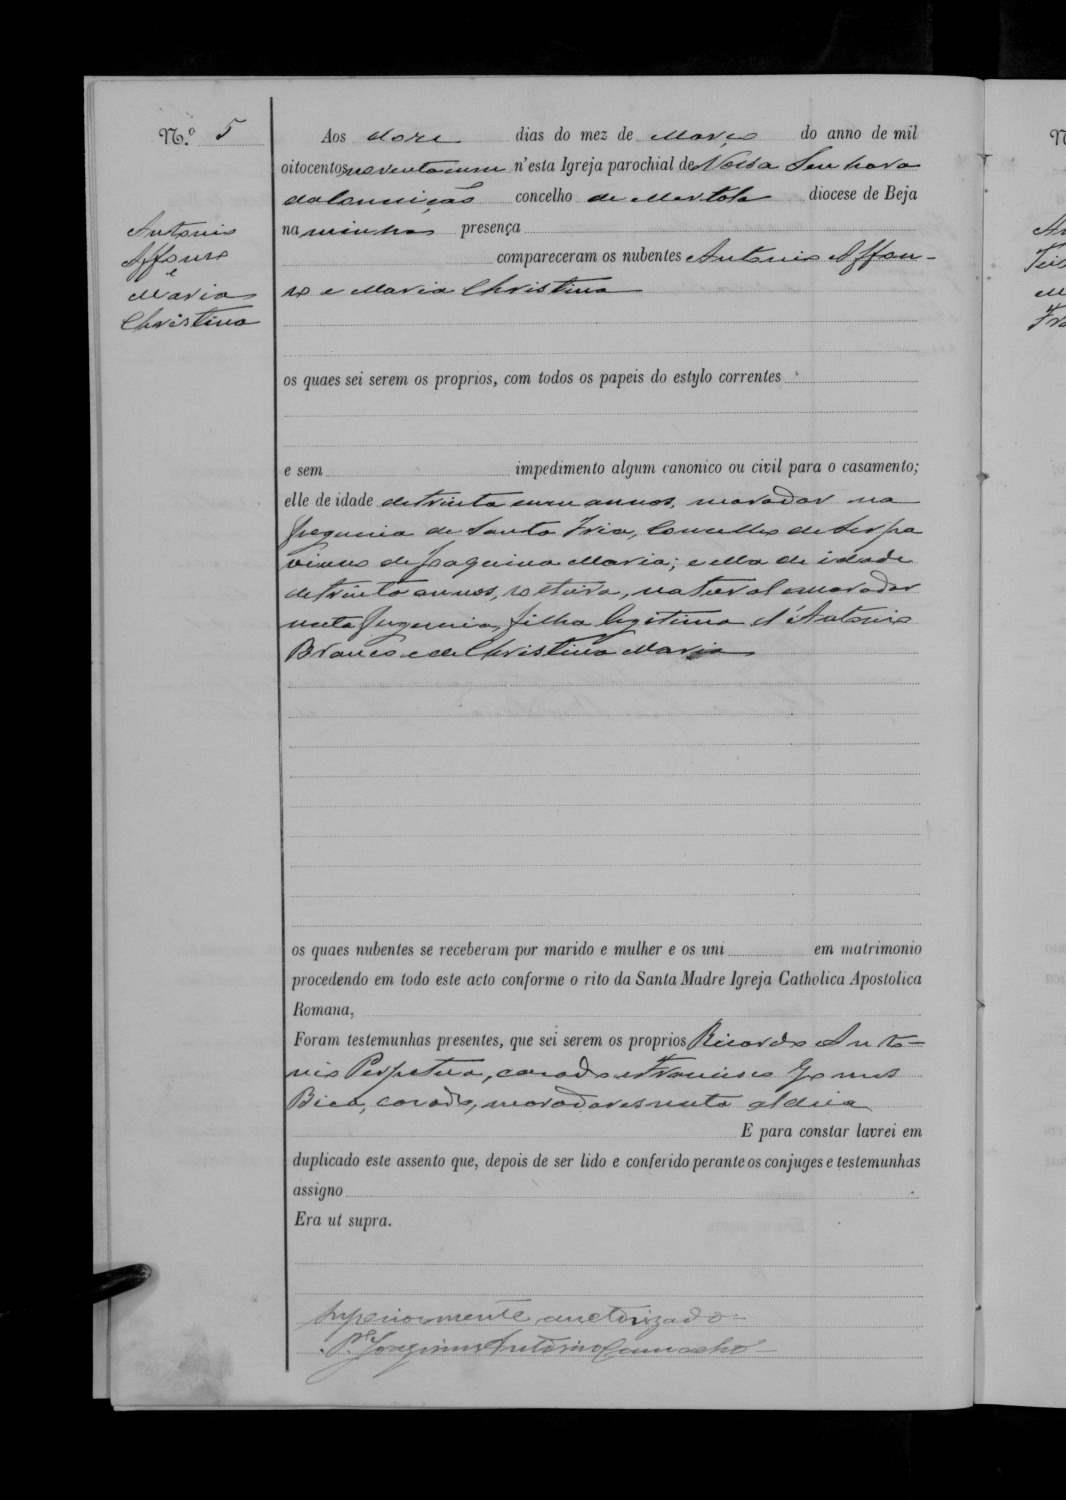 N.º 5
Antonio
Affonso
e
Maria
Christina
Aos doze dias do mez de Março do anno de mil
oitocentos noventa e um n'esta Igreja parochial de Nossa Senhora
da Conceição concelho de Mertola diocese de Beja
na minha presença
compareceram os nubentes Antonio Affon-
so e Maria Christina
os quaes sei serem os proprios, com todos os papeis do estylo correntes
e sem impedimento algum canonico ou civil para o casamento;
elle de idade de trinta e um annos, morador na
freguesia de Santa Iria, Concelho de Serpa
viuvo de Joaquina Maria; e ella de idade
de trinta annos, solteira, natural e morador
nesta freguesia, filha legitima d'Antonio
Branco e de Christina Maria
os quaes nubentes se receberam por marido e mulher e os uni em matrimonio
procedendo em todo este acto conforme o rito da Santa Madre Igreja Catholica Apostolica
Romana,
Foram testemunhas presentes, que sei serem os proprios Ricardo Anto-
nio Perpetua, casado e Francisco Gomes
casado, moradores nesta aldeia
E para constar lavrei em
duplicado este assento que, depois de ser lido e conferido perante os conjuges e testemunhas
assigno
Era ut supra.
Superiormente auctorizado
P.e Joaquim Antonio Camacho